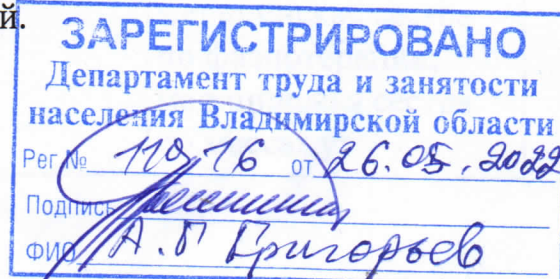 й.
ЗАРЕГИСТРИРОВАНО
Департамент труда и занятости
населения Владимирской области
Рег № от 26.05.2022
Подпись
ФИО А.Г Григорьев